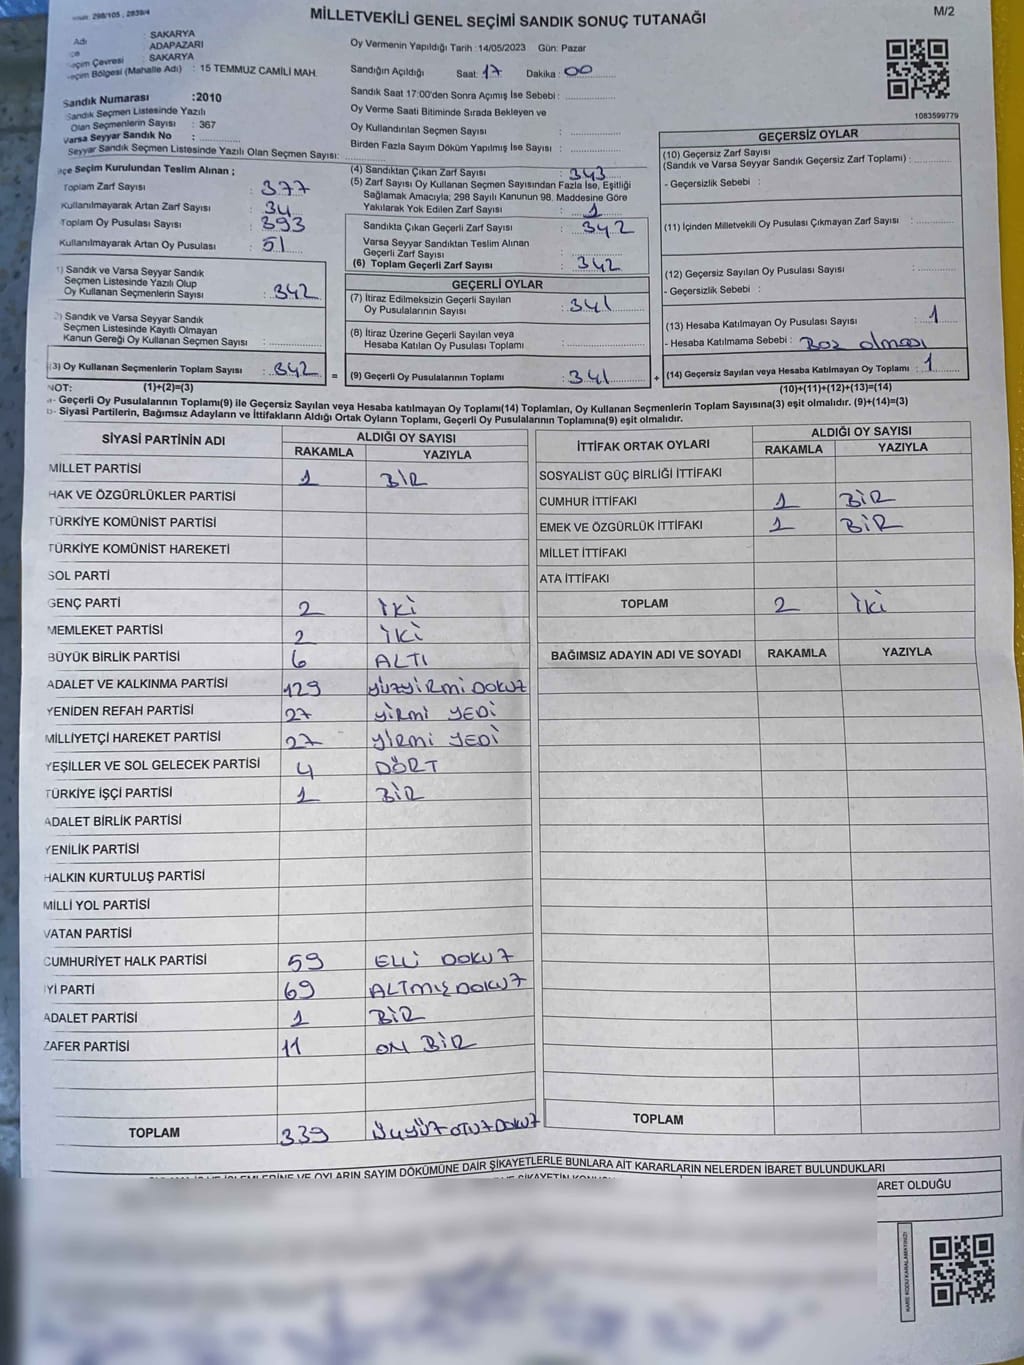 298/105, 2839/4
MİLLETVEKİLİ GENEL SEÇİMİ SANDIK SONUÇ TUTANAĞI
M/2
Adı : SAKARYA
ADAPAZARI
Seçim Çevresi : SAKARYA
Seçim Bölgesi (Mahalle Adı) : 15 TEMMUZ CAMİLİ MAH.
Oy Vermenin Yapıldığı Tarih : 14/05/2023 Gün: Pazar
Sandığın Açıldığı Saat: 17 Dakika : 00
Sandık Saat 17:00'den Sonra Açımış İse Sebebi :
Oy Verme Saati Bitiminde Sırada Bekleyen ve
Oy Kullandırılan Seçmen Sayısı :
Birden Fazla Sayım Döküm Yapılmış İse Sayısı :
1083599779
Sandık Numarası :2010
Sandık Seçmen Listesinde Yazılı
Olan Seçmenlerin Sayısı : 367
Varsa Seyyar Sandık No :
Seyyar Sandık Seçmen Listesinde Yazılı Olan Seçmen Sayısı:
İlçe Seçim Kurulundan Teslim Alınan ;
Toplam Zarf Sayısı : 377
Kullanılmayarak Artan Zarf Sayısı : 34
Toplam Oy Pusulası Sayısı : 393
Kullanılmayarak Artan Oy Pusulası : 51
1) Sandık ve Varsa Seyyar Sandık
Seçmen Listesinde Yazılı Olup
Oy Kullanan Seçmenlerin Sayısı : 342
2) Sandık ve Varsa Seyyar Sandık
Seçmen Listesinde Kayıtlı Olmayan
Kanun Gereği Oy Kullanan Seçmen Sayısı :
(3) Oy Kullanan Seçmenlerin Toplam Sayısı : 342 =
(4) Sandıktan Çıkan Zarf Sayısı : 343
(5) Zarf Sayısı Oy Kullanan Seçmen Sayısından Fazla İse, Eşitliği
Sağlamak Amacıyla; 298 Sayılı Kanunun 98. Maddesine Göre
Yakılarak Yok Edilen Zarf Sayısı : 1
Sandıkta Çıkan Geçerli Zarf Sayısı : 342
Varsa Seyyar Sandıktan Teslim Alınan
Geçerli Zarf Sayısı :
(6) Toplam Geçerli Zarf Sayısı : 342
GEÇERLİ OYLAR
(7) İtiraz Edilmeksizin Geçerli Sayılan
Oy Pusulalarının Sayısı : 341
(8) İtiraz Üzerine Geçerli Sayılan veya
Hesaba Katılan Oy Pusulası Toplamı :
(9) Geçerli Oy Pusulalarının Toplamı : 341 +
GEÇERSİZ OYLAR
(10) Geçersiz Zarf Sayısı
(Sandık ve Varsa Seyyar Sandık Geçersiz Zarf Toplamı) :
- Geçersizlik Sebebi :
(11) İçinden Milletvekili Oy Pusulası Çıkmayan Zarf Sayısı :
(12) Geçersiz Sayılan Oy Pusulası Sayısı :
- Geçersizlik Sebebi :
(13) Hesaba Katılmayan Oy Pusulası Sayısı : 1
- Hesaba Katılmama Sebebi : Boz olması
(14) Geçersiz Sayılan veya Hesaba Katılmayan Oy Toplamı : 1
NOT: (1)+(2)=(3)
(10)+(11)+(12)+(13)=(14)
a- Geçerli Oy Pusulalarının Toplamı(9) ile Geçersiz Sayılan veya Hesaba katılmayan Oy Toplamı(14) Toplamları, Oy Kullanan Seçmenlerin Toplam Sayısına(3) eşit olmalıdır. (9)+(14)=(3)
b- Siyasi Partilerin, Bağımsız Adayların ve İttifakların Aldığı Ortak Oyların Toplamı, Geçerli Oy Pusulalarının Toplamına(9) eşit olmalıdır.
SİYASİ PARTİNİN ADI ALDIĞI OY SAYISI
RAKAMLA YAZIYLA
MİLLET PARTİSİ 1 BİR
HAK VE ÖZGÜRLÜKLER PARTİSİ
TÜRKİYE KOMÜNİST PARTİSİ
TÜRKİYE KOMÜNİST HAREKETİ
SOL PARTİ
GENÇ PARTİ 2 İKİ
MEMLEKET PARTİSİ 2 İKİ
BÜYÜK BİRLİK PARTİSİ 6 ALTI
ADALET VE KALKINMA PARTİSİ 129 YÜZYİRMİ DOKUZ
YENİDEN REFAH PARTİSİ 27 YİRMİ YEDİ
MİLLİYETÇİ HAREKET PARTİSİ 27 YİRMİ YEDİ
YEŞİLLER VE SOL GELECEK PARTİSİ 4 DÖRT
TÜRKİYE İŞÇİ PARTİSİ 1 BİR
ADALET BİRLİK PARTİSİ
YENİLİK PARTİSİ
HALKIN KURTULUŞ PARTİSİ
MİLLİ YOL PARTİSİ
VATAN PARTİSİ
CUMHURİYET HALK PARTİSİ 59 ELLİ DOKUZ
İYİ PARTİ 69 ALTMIŞ DOKUZ
ADALET PARTİSİ 1 BİR
ZAFER PARTİSİ 11 ON BİR
TOPLAM 339 ÜÇYÜZ OTUZ DOKUZ
İTTİFAK ORTAK OYLARI ALDIĞI OY SAYISI
RAKAMLA YAZIYLA
SOSYALİST GÜÇ BİRLİĞİ İTTİFAKI
CUMHUR İTTİFAKI 1 BİR
EMEK VE ÖZGÜRLÜK İTTİFAKI 1 BİR
MİLLET İTTİFAKI
ATA İTTİFAKI
TOPLAM 2 İKİ
BAĞIMSIZ ADAYIN ADI VE SOYADI RAKAMLA YAZIYLA
TOPLAM
OYLARIN SAYIM DÖKÜMÜNE DAİR ŞİKAYETLERLE BUNLARA AİT KARARLARIN NELERDEN İBARET BULUNDUKLARI
ARET OLDUĞU